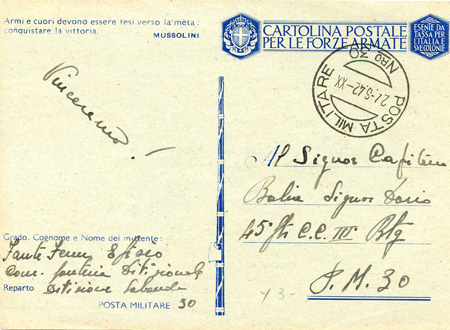 Armi e cuori devono essere tesi verso la mèta:
conquistare la vittoria.
MUSSOLINI
CARTOLINA POSTALE
PER LE FORZE ARMATE
ESENTE DA
TASSA PER
L'ITALIA E
SUE COLONIE
POSTA MILITARE
NRO 30
21-6-42-XX
Vinceremo!
Al Signor Capitano
Signor Dario
45° C.C. IV Btg
P.M. 30
Grado, Cognome e Nome del mittente:
Efisio
Com. fanteria Divisionale
Reparto Divisione Sabauda
POSTA MILITARE 30